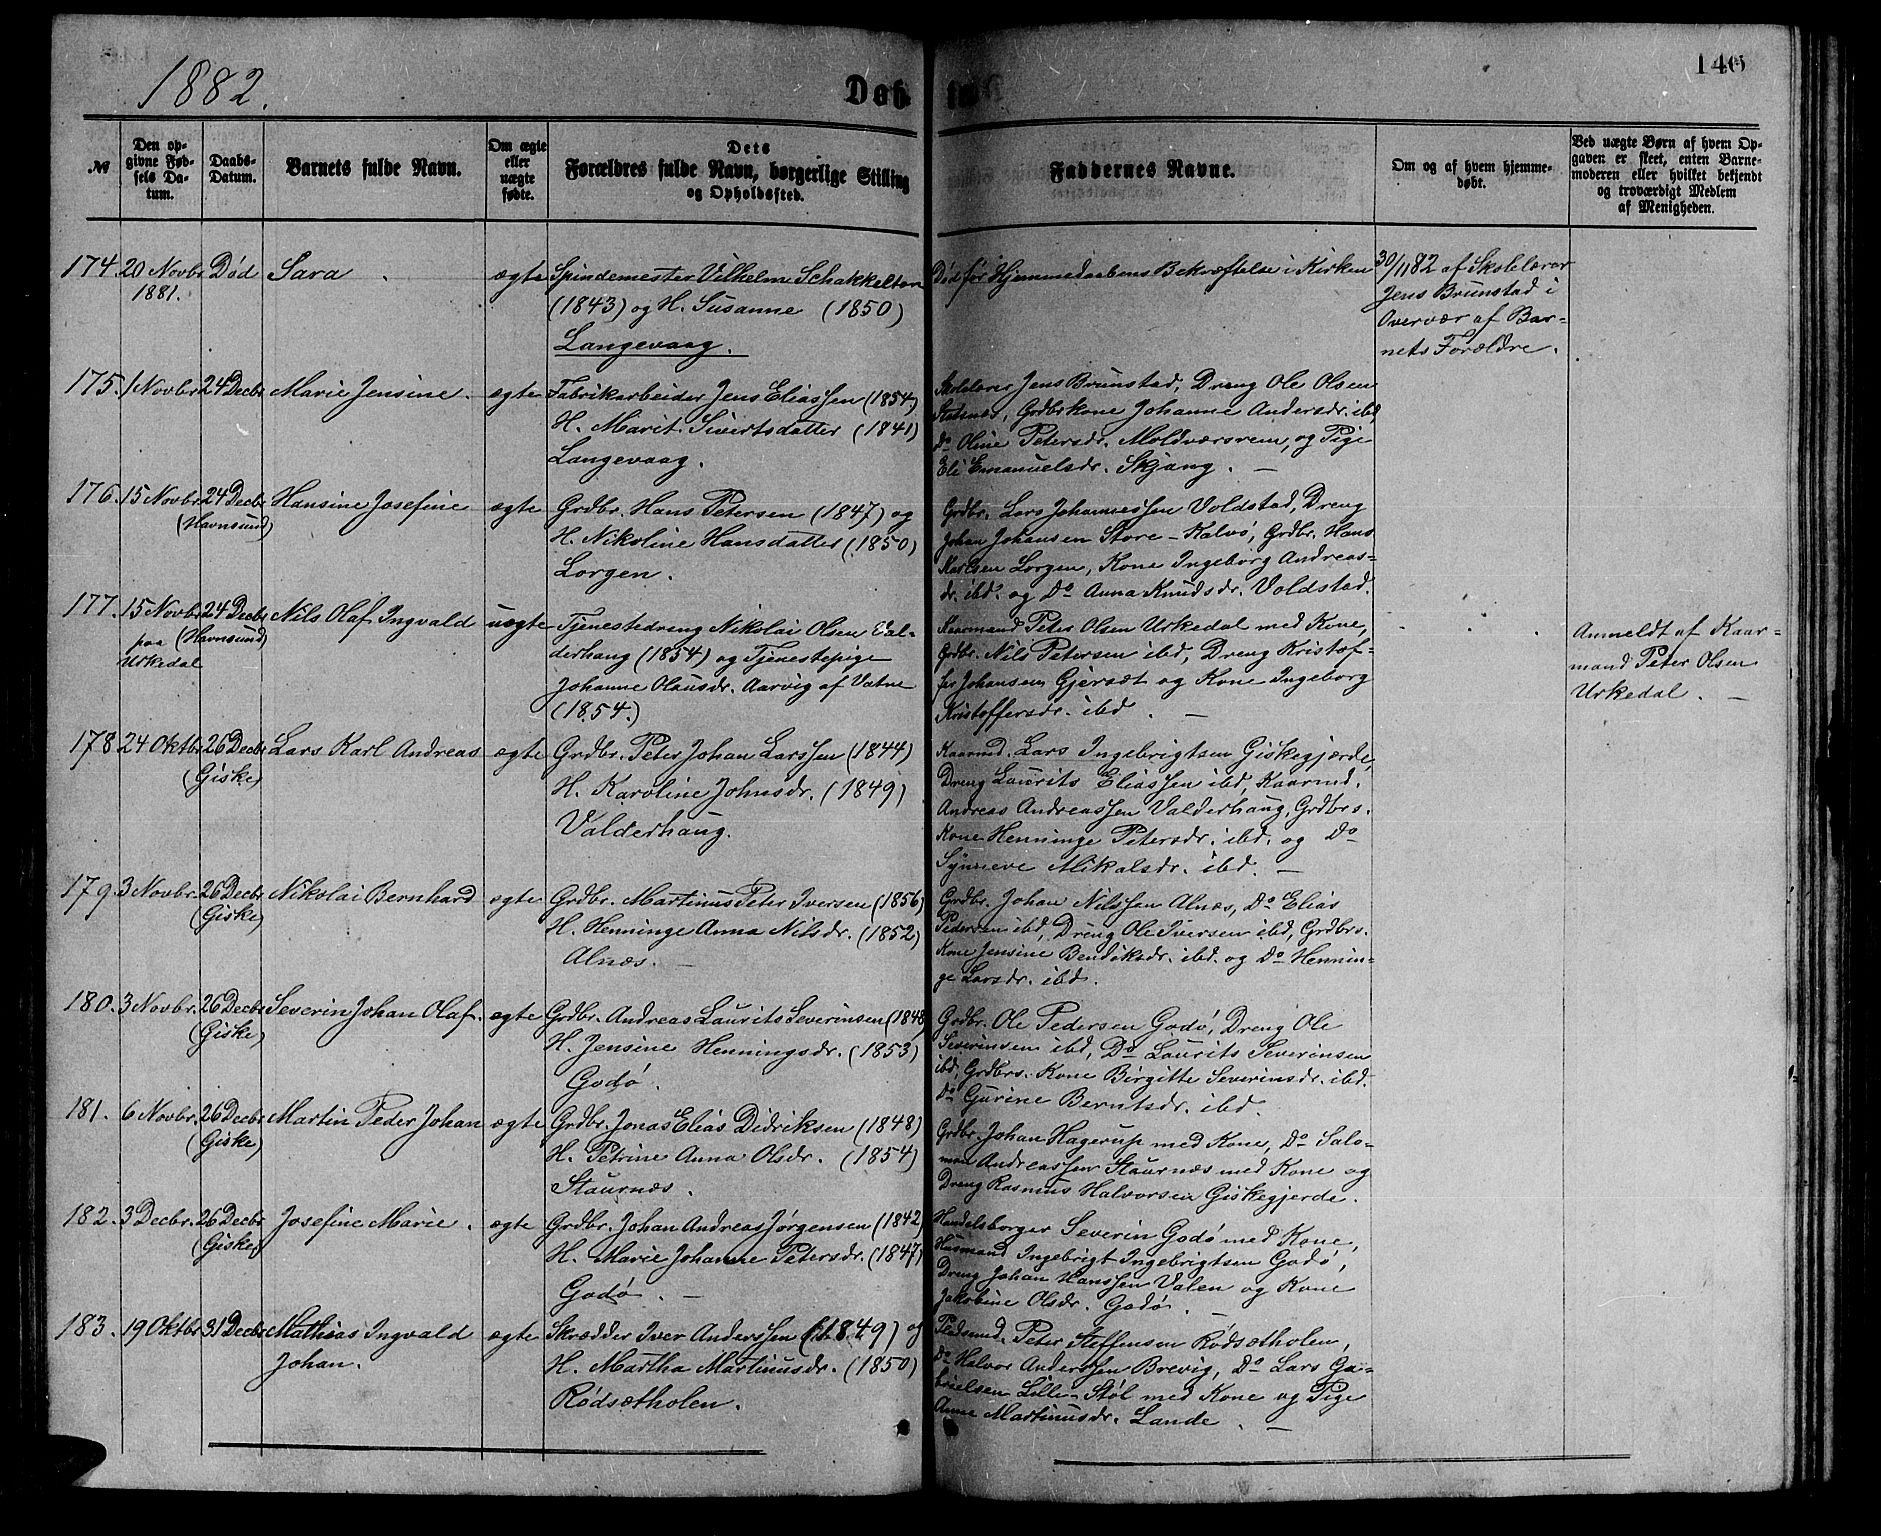 1882.
Døb
te.
146
№
Den op-
givne Fød-
sels Da-
tum.
Daabs-
Datum.
Barnets fulde Navn.
Om ægte
eller
uægte
fødte.
Dets
Forældres fulde Navn, borgerlige Stilling
og Opholdssted.
Faddernes Navne.
Om og af hvem hjemme-
døbt.
Ved uægte Børn af hvem Op-
gaven er skeet, enten Barne-
moderen eller hvilket bekjendt
og troværdigt Medlem
af Menigheden.
174. 20 Novbr. Død Sara ægte Spindemester Vilhelm Schakkelton Død før Hjemmedaabens Bekræftelse i Kirken 30/11 82 af Skolelærer
1881. (1843) og H. Susanne (1850) Jens Brunstad i
Langevaag. Overvær af Bar-
nets Forældre.
175. 1 Novbr 24 Decbr Marie Jensine. ægte Fabrikarbeider Jens Eliassen (1854) Skolelærer Jens Brunstad, Dreng Ole Olsen
H. Marit Sivertsdatter (1841) Grdbrkone Johanne Andersdr. ibd,
Langevaag. Do Oline Petersdr. Moldværsrem, og Pige
Eli Emanuelsdr. Skjong. —
176. 15 Novbr. 24 Decbr Hansine Josefine ægte Grdbr. Hans Petersen (1847) og Grdbr. Lars Johannessen Voldstad, Dreng
(Havnsund) H. Nikoline Hansdatter (1850) Johan Johansen Store-Kalvø, Grdbr. Hans
Lorgen. Karlsen Lorgen, Kone Ingeborg Andreas-
dr. ibd. og Do Anna Knudsdr. Voldstad.
177. 15 Novbr. 24 Decbr Nils Olaf Ingvald uægte Tjenestedreng Nikolai Olsen Val- Kaarmand Peter Olsen Urkedal med Kone, Anmeldt af Kaar-
paa (Havnsund) derhaug (1854) og Tjenestepige Grdbr. Nils Petersen ibd, Dreng Kristof- mand Peter Olsen
Urkedal Johanne Olausdr. Aarvig af Vatne fer Johansen Gjersæt og Kone Ingeborg Urkedal. —
(1854.) Kristoffersdr. ibd. —
178 24 Oktbr. 26 Decbr Lars Karl Andreas ægte Grdbr. Peter Johan Larssen (1844) Kaarmd. Lars Ingebrigtsen Giskegjærde,
(Giske) H. Karoline Johnsdr. (1849) Dreng Laurits Eliassen ibd, Kaarmd.
Valderhaug. Andreas Andreassen Valderhaug, Grdbrs.
Kone Henninge Petersdr. ibd. og Do
Synneve Mikalsdr. ibd. —
179. 3 Novbr. 26 Decbr Nikolai Bernhard ægte Grdbr. Martinus Peter Iversen (1856) Grdbr. Johan Nilssen Alnæs, Do Elias
(Giske) H. Henninge Anna Nilsdr. (1852) Pedersen ibd, Dreng Ole Iversen ibd, Grdbrs.
Alnæs. — Kone Jensine Bendiksdr. ibd. og Do Hennin-
ge Larsdr. ibd.
180. 3 Novbr. 26 Decbr Severin Johan Olaf. ægte Grdbr. Andreas Laurits Severinsen (1848) Grdbr. Ole Pedersen Godø, Dreng Ole
(Giske) H. Jensine Henningsdr. (1853) Severinsen ibd, Do Laurits Severinsen
Godø. ibd, Grdbrs. Kone Birgitte Severinsdr. ibd.
Do Gurine Berntsdr. ibd.
181. 6 Novbr. 26 Decbr Martin Peder Johan ægte Grdbr. Jonas Elias Didriksen (1848) Grdbr. Johan Hagerup med Kone, Do Salo-
(Giske) H. Petrine Anna Olsdr. (1854) mon Andreassen Staurnæs med Kone og
Staurnæs. Dreng Rasmus Halvorsen Giskegjerde.
182. 3 Decbr. 26 Decbr Josefine Marie. ægte Grdbr. Johan Andreas Jørgensen (1842) Handelsborger Severin Godø med Kone,
(Giske) H. Marie Johanne Petersdr. (1847) Husmand Ingebrigt Ingebrigtsen Godø,
Godø. — Dreng Johan Hanssen Valen og Kone
Jakobine Olsdr. Godø. —
183. 19 Oktbr 31 Decbr Mathias Ingvald ægte Skrædder Iver Anderssen (1849) og Pladsmd. Peter Steffensen Rødsætholen,
Johan. H. Martha Martinusdr. (1850) Do Halvor Anderssen Brevig, Do Lars Ga-
Rødsætholen. brielsen Lille-Støl med Kone og Pige
Anne Martinusdr. Lande. —